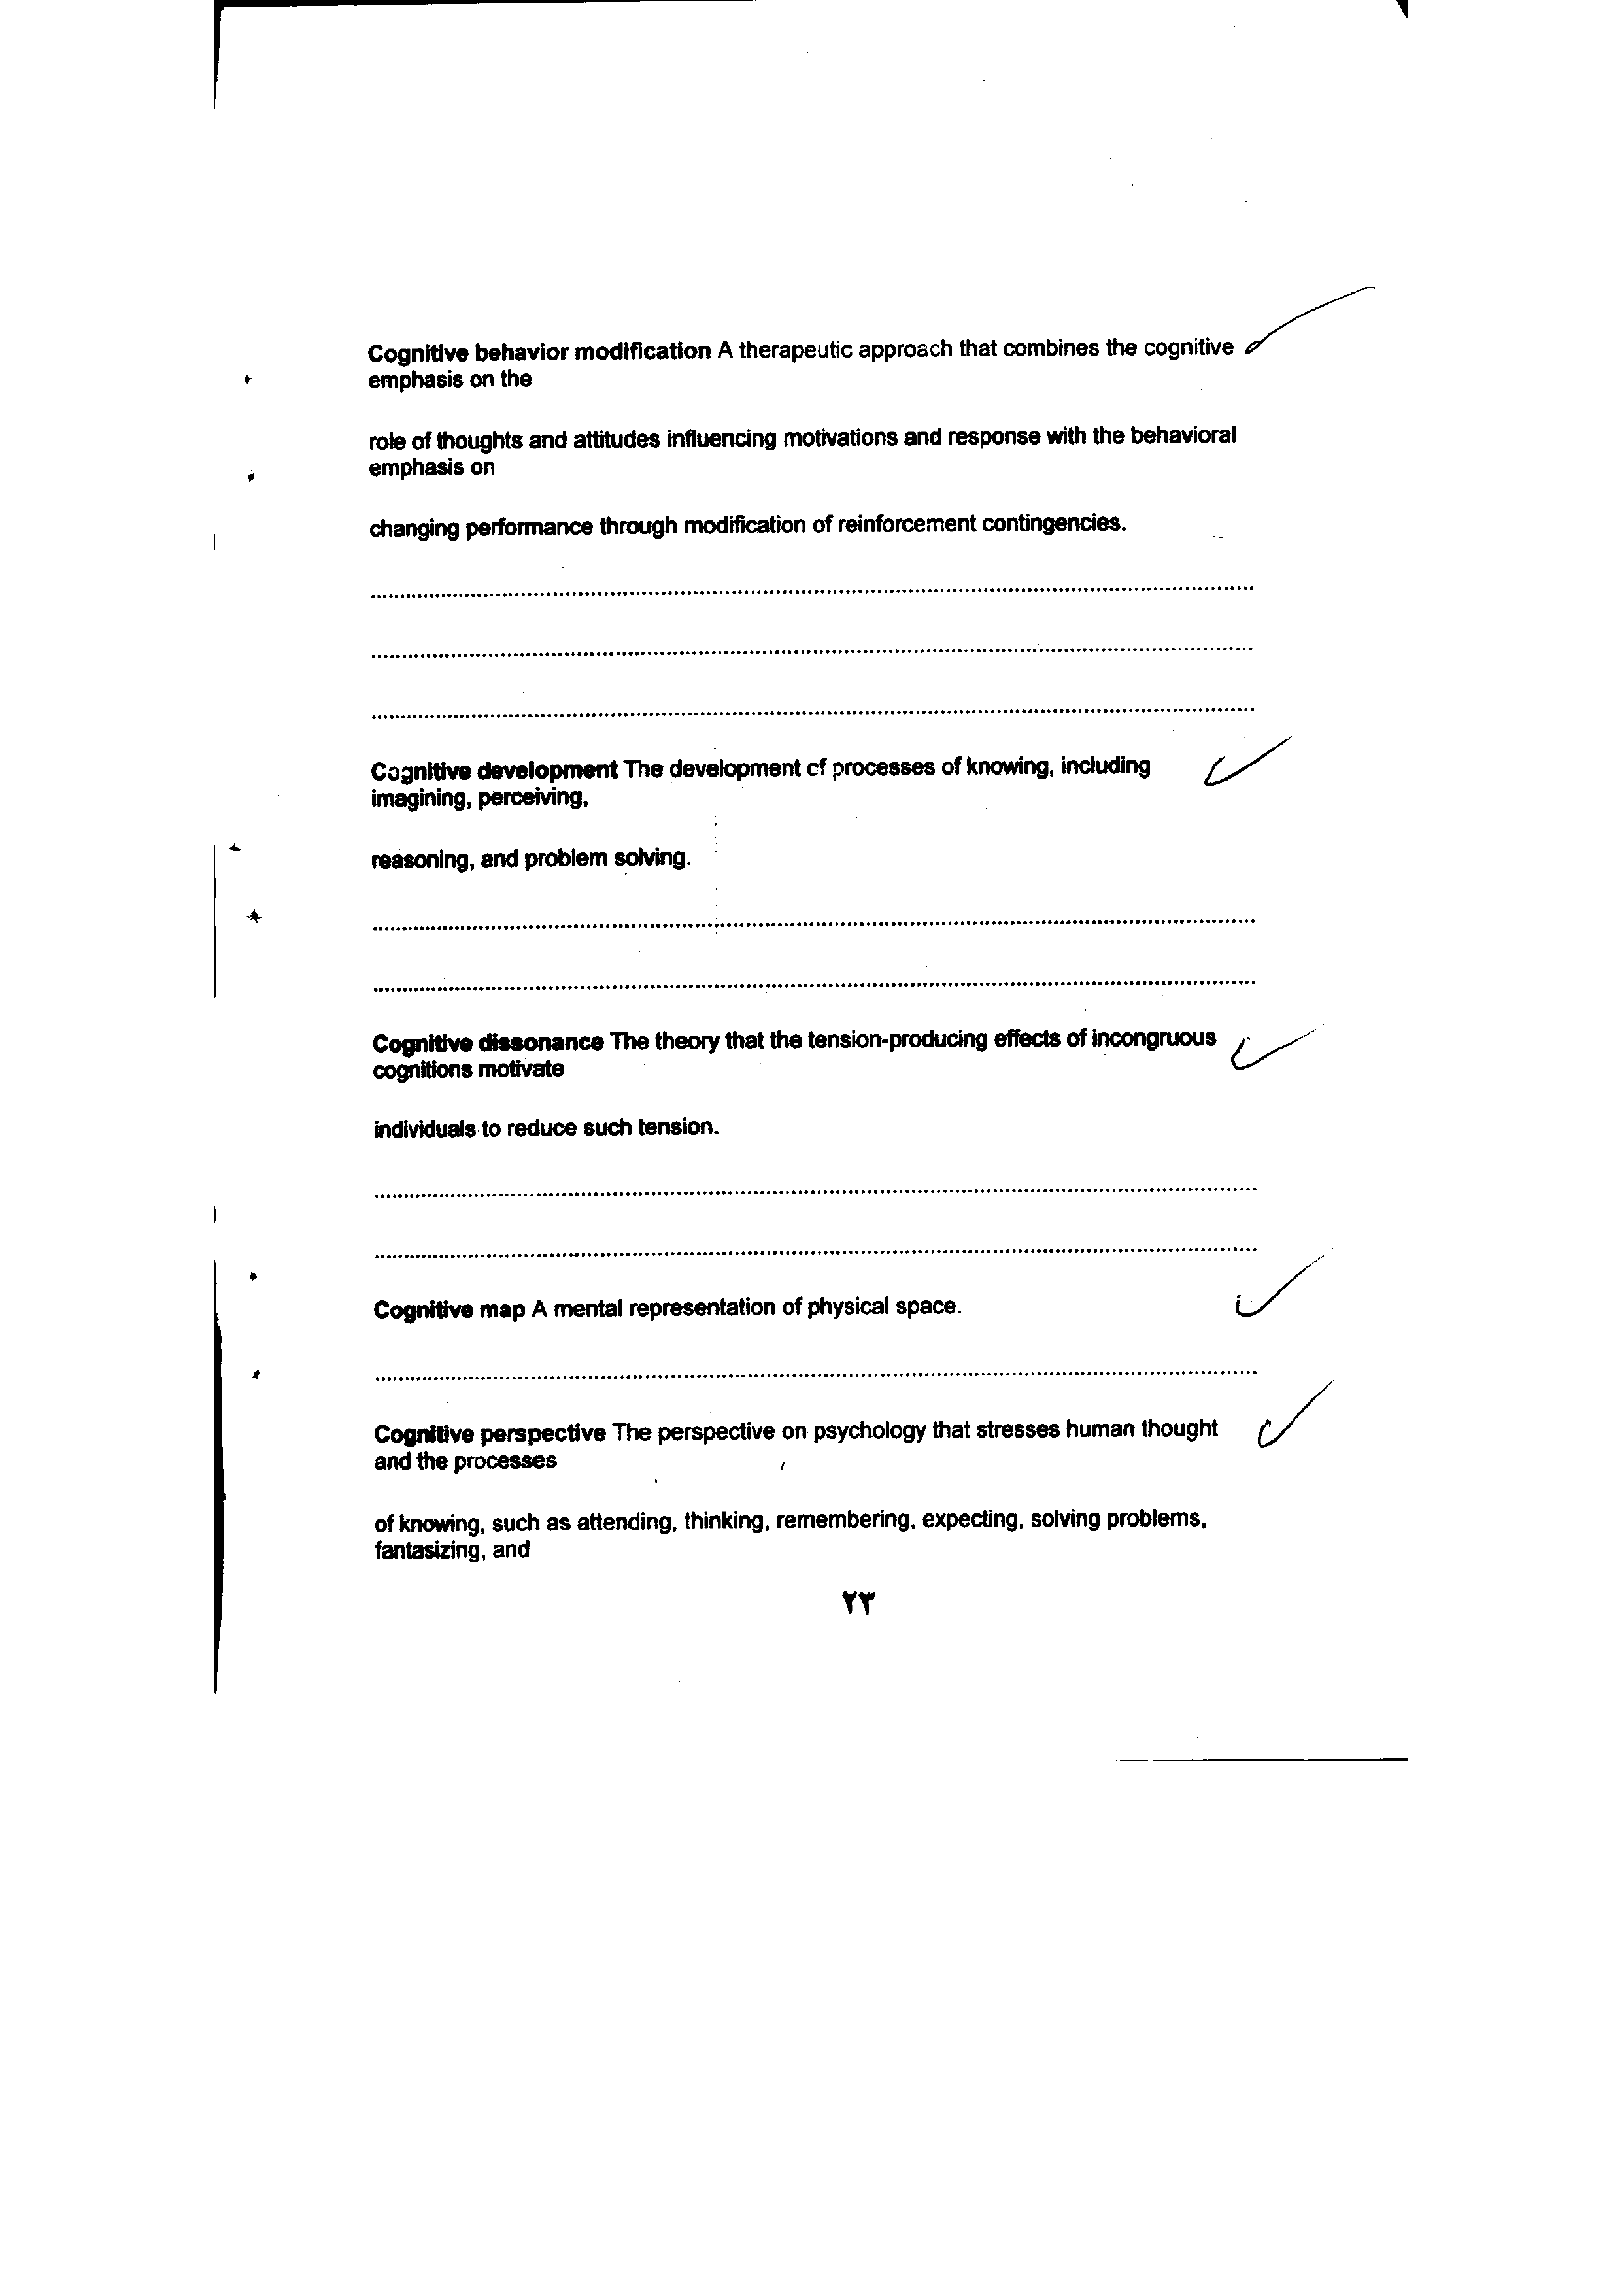 Cognitive behavior modification A therapeutic approach that combines the cognitive
emphasis on the
role of thoughts and attitudes influencing motivations and response with the behavioral
emphasis on
changing performance through modification of reinforcement contingencies.
Cognitive development The development of processes of knowing, including
imagining, perceiving,
reasoning, and problem solving.
Cognitive dissonance The theory that the tension-producing effects of incongruous
cognitions motivate
individuals to reduce such tension.
Cognitive map A mental representation of physical space.
Cognitive perspective The perspective on psychology that stresses human thought
and the processes
of knowing, such as attending, thinking, remembering, expecting, solving problems,
fantasizing, and
٢٣